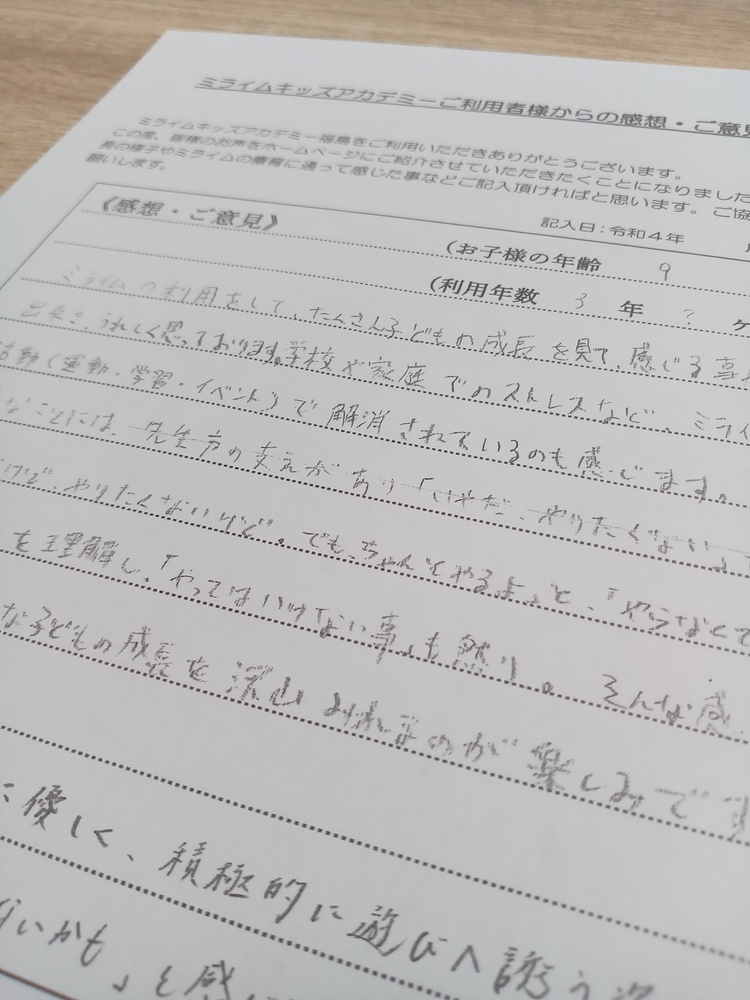 ミライムキッズアカデミーご利用者様からの感想・ご意見
ミライムキッズアカデミー福島をご利用いただきありがとうございます。
この度、皆様のお声をホームページにご紹介させていただきたくことになりました
長の様子やミライムの療育に通って感じた事などご記入頂ければと思います。ご協
願いします。
記入日：令和４年
《感想・ご意見》
（お子様の年齢 9
（利用年数 3 年 ？ ヶ
ミライムの利用をして、たくさん子どもの成長を見て、感じる事
出来て、うれしく思っております。学校や家庭でのストレスなど、ミライ
活動（運動・学習・イベント）で解消されているのも感じます。
なことには、先生方の支えがあり「いやだ、やりたくない」
けど、やりたくないけど。でも、ちゃんとやるよ。」と、「やらなくて
を理解し、「やってはいけない事」も然り。そんな感
な子どもの成長を沢山みれるのが楽しみです
に優しく、積極的に遊びへ誘う
ないかも」と感